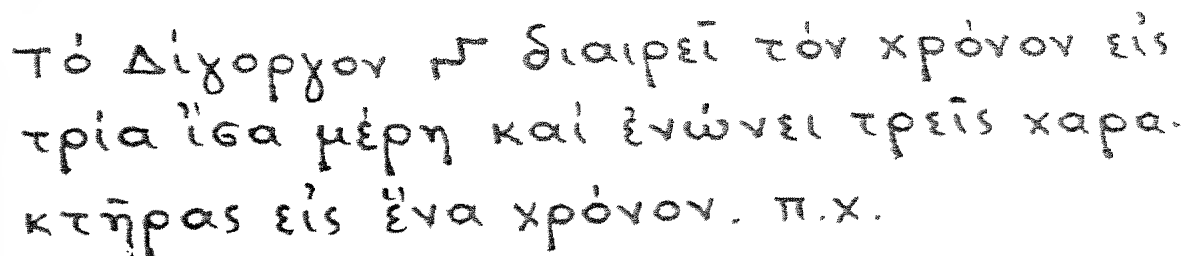 Τό Δίγοργον διαιρεῖ τόν χρόνον εἰς
τρία ἴσα μέρη καί ἑνώνει τρεῖς χαρα-
κτῆρας εἰς ἕνα χρόνον. π.χ.